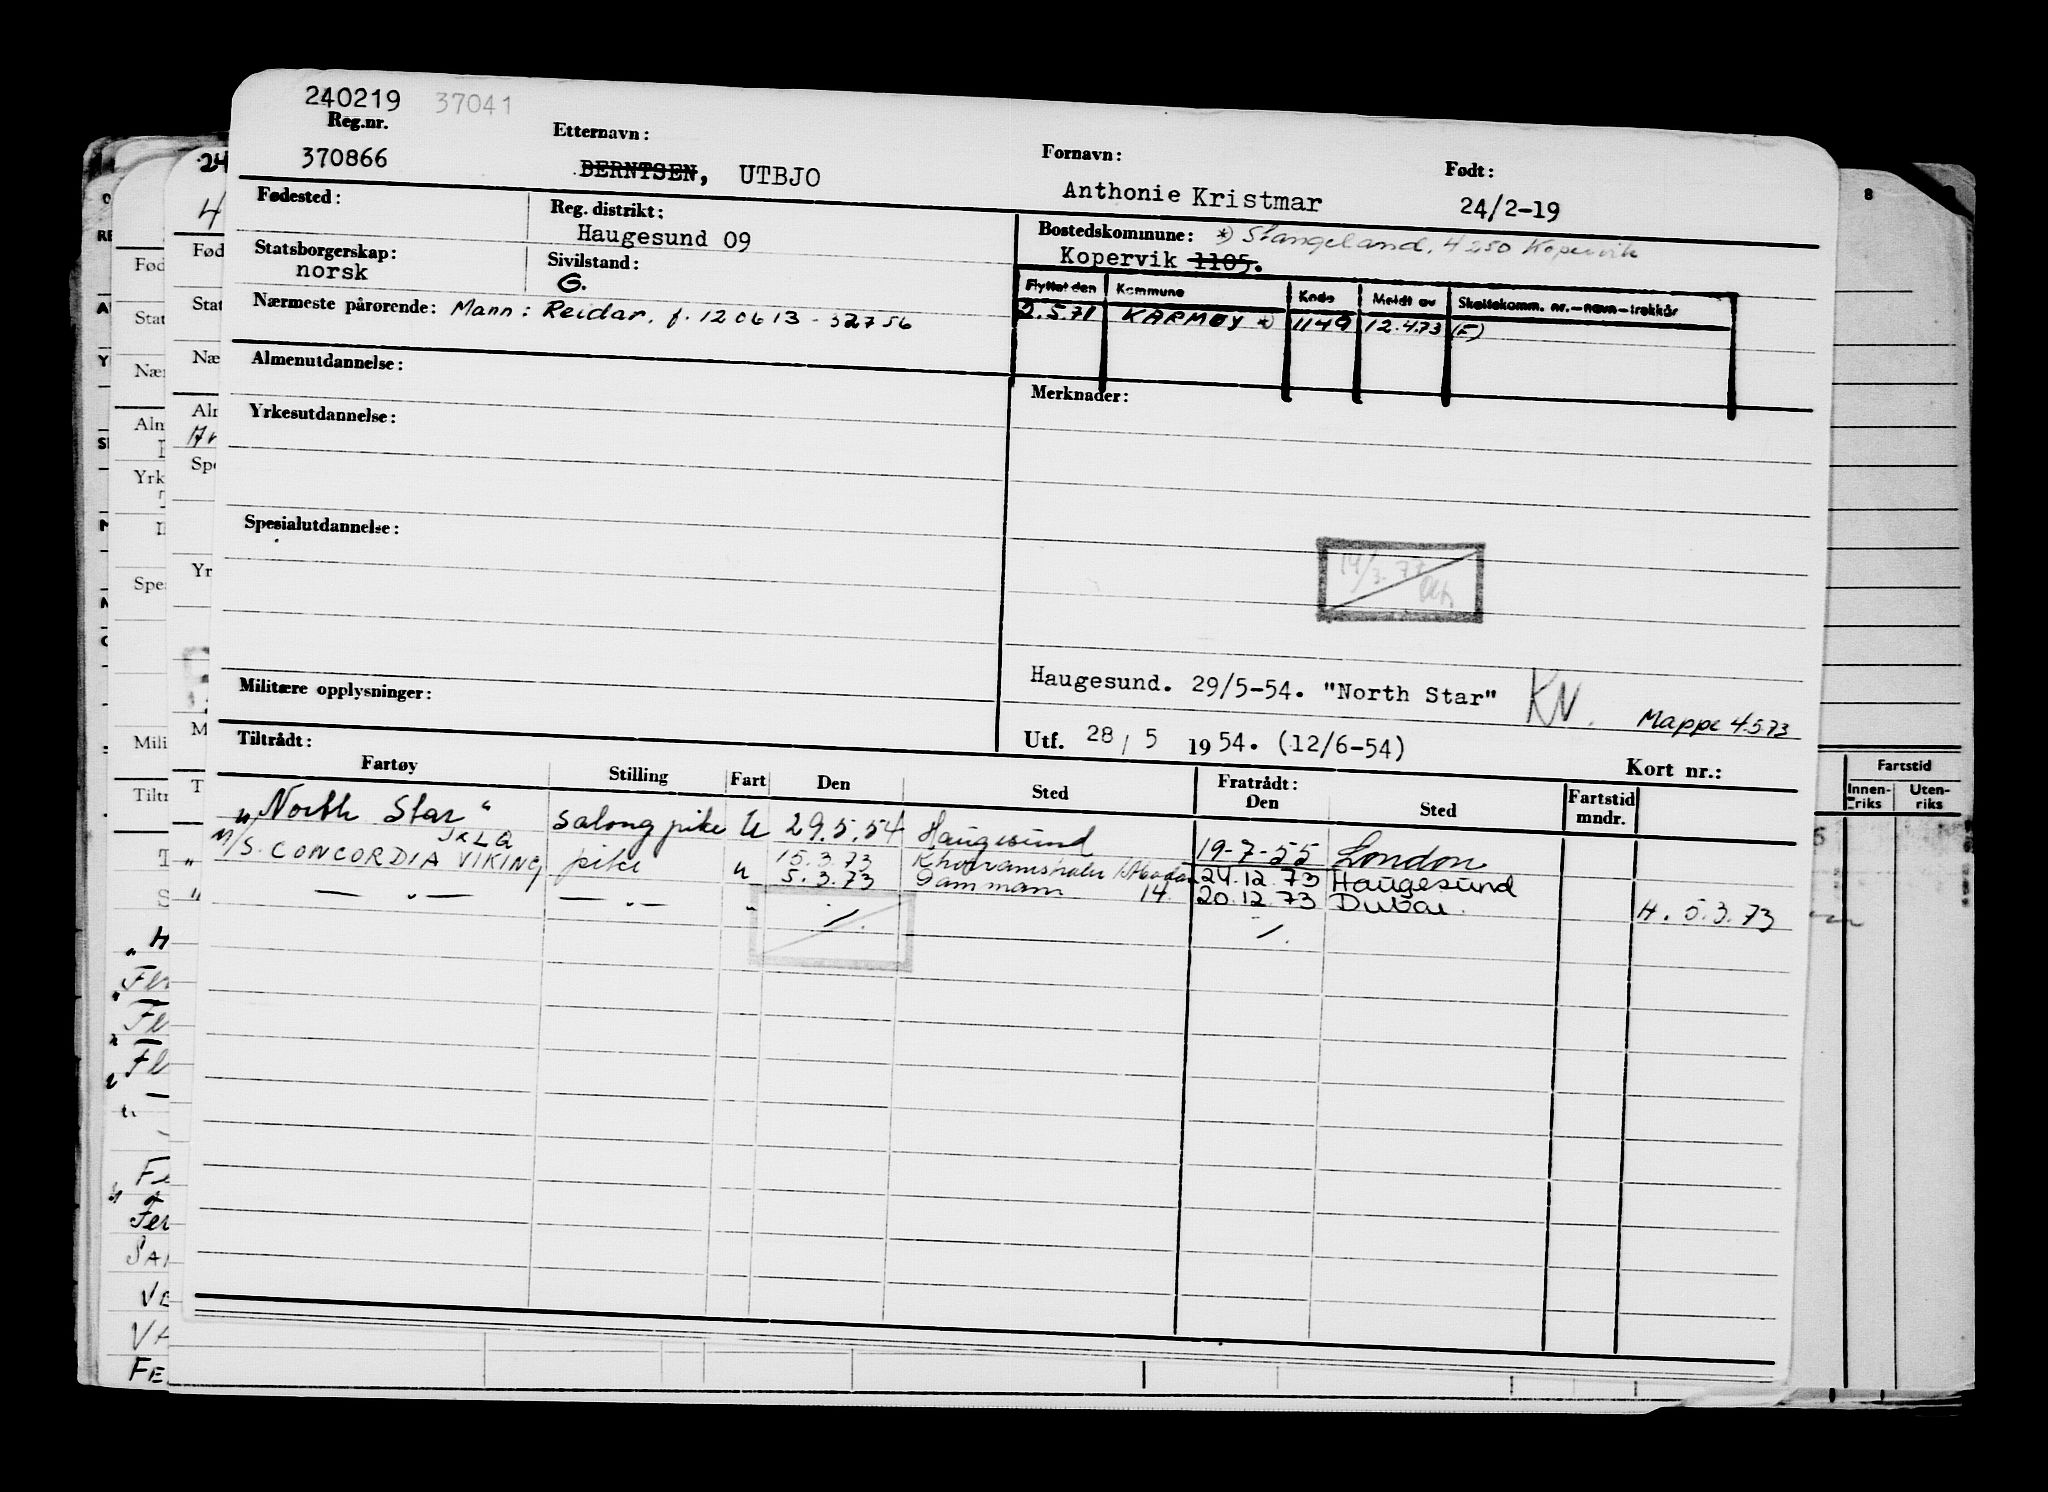 240219 37041
Reg.nr.
370866
Etternavn:
BERNTSEN, UTBJO
Fornavn:
Anthonie Kristmar
Født:
24/2-19
Fødested:
Reg. distrikt:
Haugesund 09
Bostedskommune: *) Stangeland, 4250 Kopervik
Kopervik 1105.
Statsborgerskap:
norsk
Sivilstand:
G.
Flyttet den Kommune Kode Meldt av Skattekomm. nr.-navn-trekkår
2.5.71 KARMØY *) 1149 12.4.73 (F)
Nærmeste pårørende: Mann: Reidar, f. 120613-32756
Almenutdannelse:
Merknader:
Yrkesutdannelse:
Spesialutdannelse:
Militære opplysninger:
Haugesund. 29/5-54. "North Star" KN. Mappe 4.5.73
Utf. 28/5 1954. (12/6-54)
Kort nr.:
Tiltrådt:
Fartøy Stilling Fart Den Sted Fratrådt: Den Sted Fartstid mndr.
"North Star" salongpike U 29.5.54 Haugesund 19-7-55 London
JKLQ
M/S. CONCORDIA VIKING pike u 15.3.73 24.12.73 Haugesund
" — " — — " — " 5.3.73 Dammam 14 20.12.73 Dubai. H. 5.3.73
8
Fartstid
Innen-riks Uten-riks